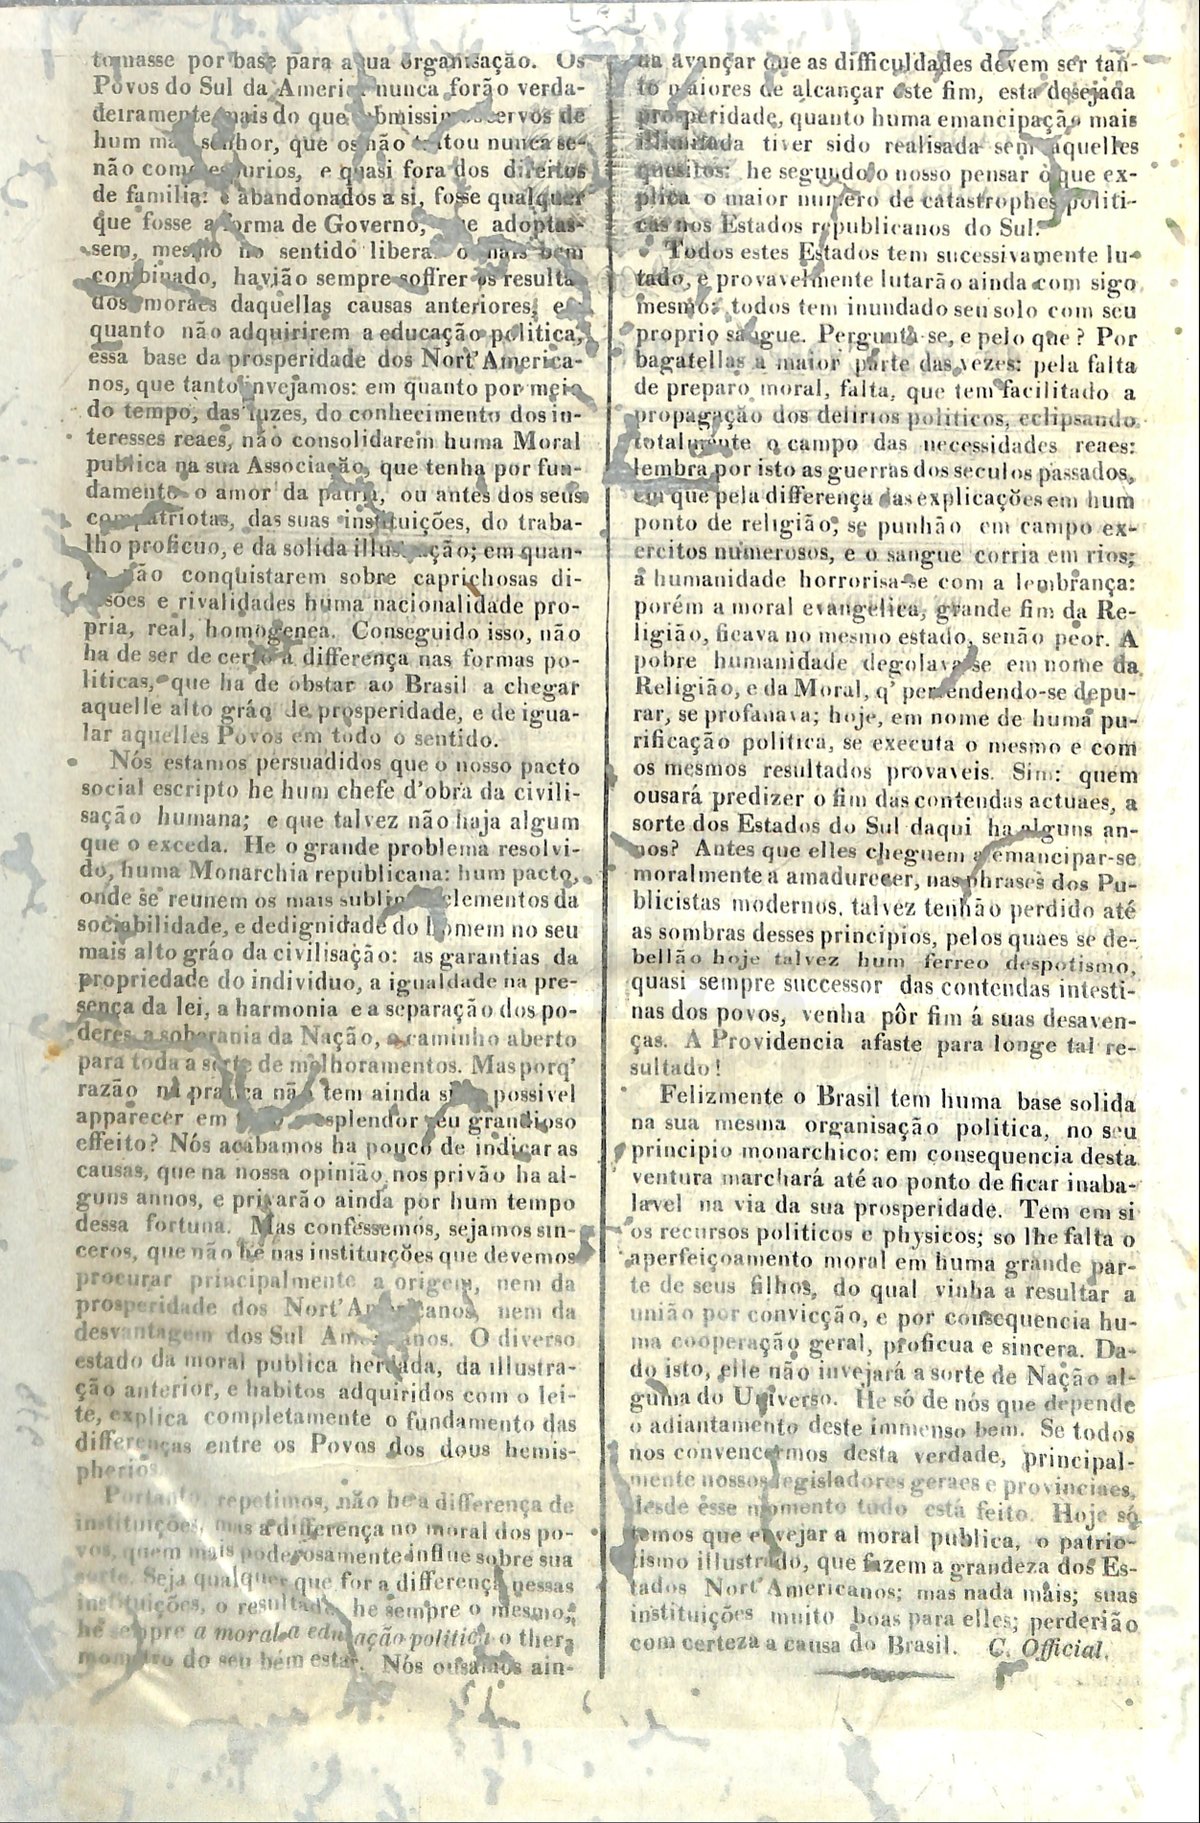 tomasse por base para a sua organisação. Os
Povos do Sul da America nunca forão verda-
deiramente mais do que submissimos servos de
hum mau senhor, que os não tratou nunca se-
não como espurios, e quasi fora dos direitos
de familia: e abandonados a si, fosse qualquer
que fosse a forma de Governo, que adoptas-
sem, mesmo no sentido liberal o mais bem
combinado, havião sempre soffrer os resulta-
dos moraes daquellas causas anteriores, em
quanto não adquirirem a educação politica,
essa base da prosperidade dos Nort'America-
nos, que tanto invejamos: em quanto por meio
do tempo, das luzes, do conhecimento dos in-
teresses reaes, não consolidarem huma Moral
publica na sua Associação, que tenha por fun-
damento o amor da patria, ou antes dos seus
compatriotas, das suas instituições, do traba-
lho proficuo, e da solida illustração; em quan-
to não conquistarem sobre caprichosas di-
visões e rivalidades huma nacionalidade pro-
pria, real, homogenea. Conseguido isso, não
ha de ser de certo a differença nas formas po-
liticas, que ha de obstar ao Brasil a chegar
aquelle alto gráo de prosperidade, e de igua-
lar aquelles Povos em todo o sentido.
Nós estamos persuadidos que o nosso pacto
social escripto he hum chefe d'obra da civili-
sação humana; e que talvez não haja algum
que o exceda. He o grande problema resolvi-
do, huma Monarchia republicana: hum pacto,
onde se reunem os mais sublimes elementos da
sociabilidade, e dedignidade do homem no seu
mais alto gráo da civilisação: as garantias da
propriedade do individuo, a igualdade na pre-
sença da lei, a harmonia e a separação dos po-
deres, a soberania da Nação, o caminho aberto
para toda a sorte de melhoramentos. Mas porq'
razão na pratica não tem ainda sido possivel
apparecer em esplendor seu grandioso
effeito? Nós acabamos ha pouco de indicar as
causas, que na nossa opinião nos privão ha al-
guns annos, e privarão ainda por hum tempo
dessa fortuna. Mas confessemos, sejamos sin-
ceros, que não he nas instituições que devemos
procurar principalmente a origem, nem da
prosperidade dos Nort'Americanos, nem da
desvantagem dos Sul Americanos. O diverso
estado da moral publica herdada, da illustra-
ção anterior, e habitos adquiridos com o lei-
te, explica completamente o fundamento das
differenças entre os Povos dos dous hemis-
pherios.
Portanto, repetimos, não he a differença de
instituições, mas a differença no moral dos po-
vos, quem mais poderosamente influe sobre sua
sorte. Seja qualquer que for a differença nessas
instituições, o resultado he sempre o mesmo,
he sempre a moral e a educação politica o ther-
mometro do seu bem estar. Nós ousamos ain-
da avançar que as difficuldades devem ser tan-
to maiores de alcançar este fim, esta desejada
prosperidade, quanto huma emancipação mais
illimitada tiver sido realisada sem aquelles
quesitos: he segundo o nosso pensar o que ex-
plica o maior numero de catastrophes politi-
cas nos Estados republicanos do Sul.
Todos estes Estados tem sucessivamente lu-
tado, e provavelmente lutarão ainda com sigo
mesmo: todos tem inundado seu solo com seu
proprio sangue. Pergunta-se, e pelo que? Por
bagatellas a maior parte das vezes: pela falta
de preparo moral, falta, que tem facilitado a
propagação dos delirios politicos, eclipsando
totalmente o campo das necessidades reaes:
lembra por isto as guerras dos seculos passados,
em que pela differença das explicações em hum
ponto de religião, se punhão em campo ex-
ercitos numerosos, e o sangue corria em rios;
a humanidade horrorisa-se com a lembrança:
porém a moral evangelica, grande fim da Re-
ligião, ficava no mesmo estado, senão peor. A
pobre humanidade degolava-se em nome da
Religião, e da Moral, q' pertendendo-se depu-
rar, se profanava; hoje, em nome de huma pu-
rificação politica, se executa o mesmo e com
os mesmos resultados provaveis. Sim: quem
ousará predizer o fim das contendas actuaes, a
sorte dos Estados do Sul daqui ha alguns an-
nos? Antes que elles cheguem a emancipar-se
moralmente a amadurecer, nas phrases dos Pu-
blicistas modernos, talvez tenhão perdido até
as sombras desses principios, pelos quaes se de-
bellão hoje talvez hum ferreo despotismo,
quasi sempre successor das contendas intesti-
nas dos povos, venha pôr fim á suas desaven-
ças. A Providencia afaste para longe tal re-
sultado!
Felizmente o Brasil tem huma base solida
na sua mesma organisação politica, no seu
principio monarchico: em consequencia desta
ventura marchará até ao ponto de ficar inaba-
lavel na via da sua prosperidade. Tem em si
os recursos politicos e physicos; so lhe falta o
aperfeiçoamento moral em huma grande par-
te de seus filhos, do qual vinha a resultar a
união por convicção, e por consequencia hu-
ma cooperação geral, proficua e sincera. Da-
do isto, elle não invejará a sorte de Nação al-
guma do Universo. He só de nós que depende
o adiantamento deste immenso bem. Se todos
nos convencermos desta verdade, principal-
mente nossos legisladores geraes e provinciaes,
desde esse momento tudo está feito. Hoje só
temos que envejar a moral publica, o patrio-
tismo illustrado, que fazem a grandeza dos Es-
tados Nort'Americanos; mas nada mais; suas
instituições muito boas para elles; perderião
com certeza a causa do Brasil. C. Official.